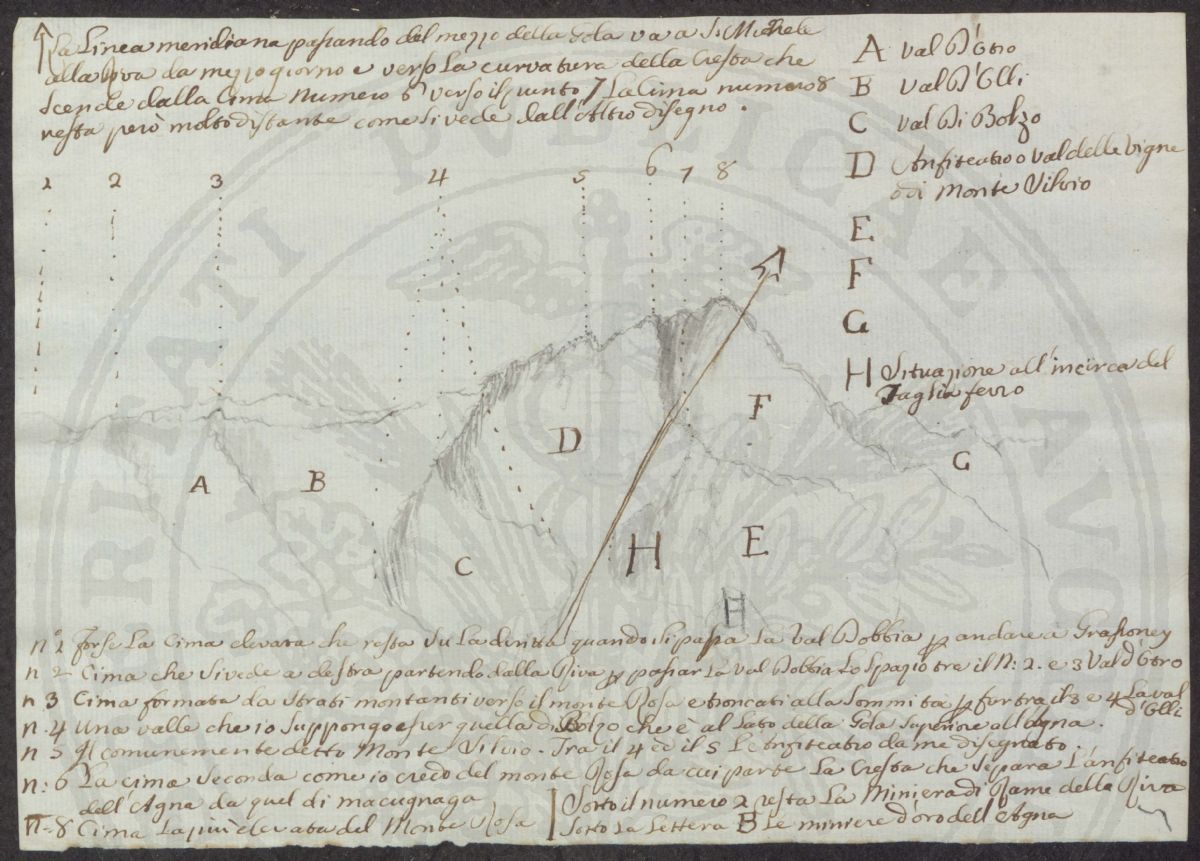 La Linea meridiana passando del mezzo della Gola va a S. Michele
alla Riva da mezzogiorno e verso La curvatura della Cresta che
scende dalla Cima numero 6 verso il punto 7 La Cima numero 8
resta però molto distante come si vede dall'Altro disegno.
A Val D'Otro
B Val D'Olli
C Val Di Bolzo
D Anfiteatro o val delle Vigne
o di Monte Vilvio
E
F
G
H Situazione all'incirca del
Taglia ferro
1 2 3 4 5 6 7 8
A B C D E F G H
H
n° 1 Forse La Cima elevata che resta su La diritta quando si passa La Val Dobbia per andare a Grassoney
n 2 Cima che si vede a destra partendo dalla Riva per passar La Val Dobbia Lo spazio tre il N: 2. e 3 Val d'Otro
n 3 Cima formata da strati montanti verso il monte Rosa e troncati alla Sommità fra il 3 e 4 La val d'Olli
n. 4 Una valle che io suppongo esser quella di Bolzo che è al Lato della Gola Superiore all'Agna.
n 5 Il comunemente detto Monte Vilvio. Tra il 4 ed il 5 Le Anfiteatro da me disegnato.
n: 6 La cima seconda come io credo del monte Rosa da cui parte La Cresta che separa L'anfiteatro
dell'Agna da quel di macugnaga
n=8 Cima La più elevata del Monte Rosa
Sotto il numero 2 resta La Miniera di Rame della Riva
Sotto La Lettera B Le miniere d'oro dell'Agna
LIBERITATI PUBLICAE AUG